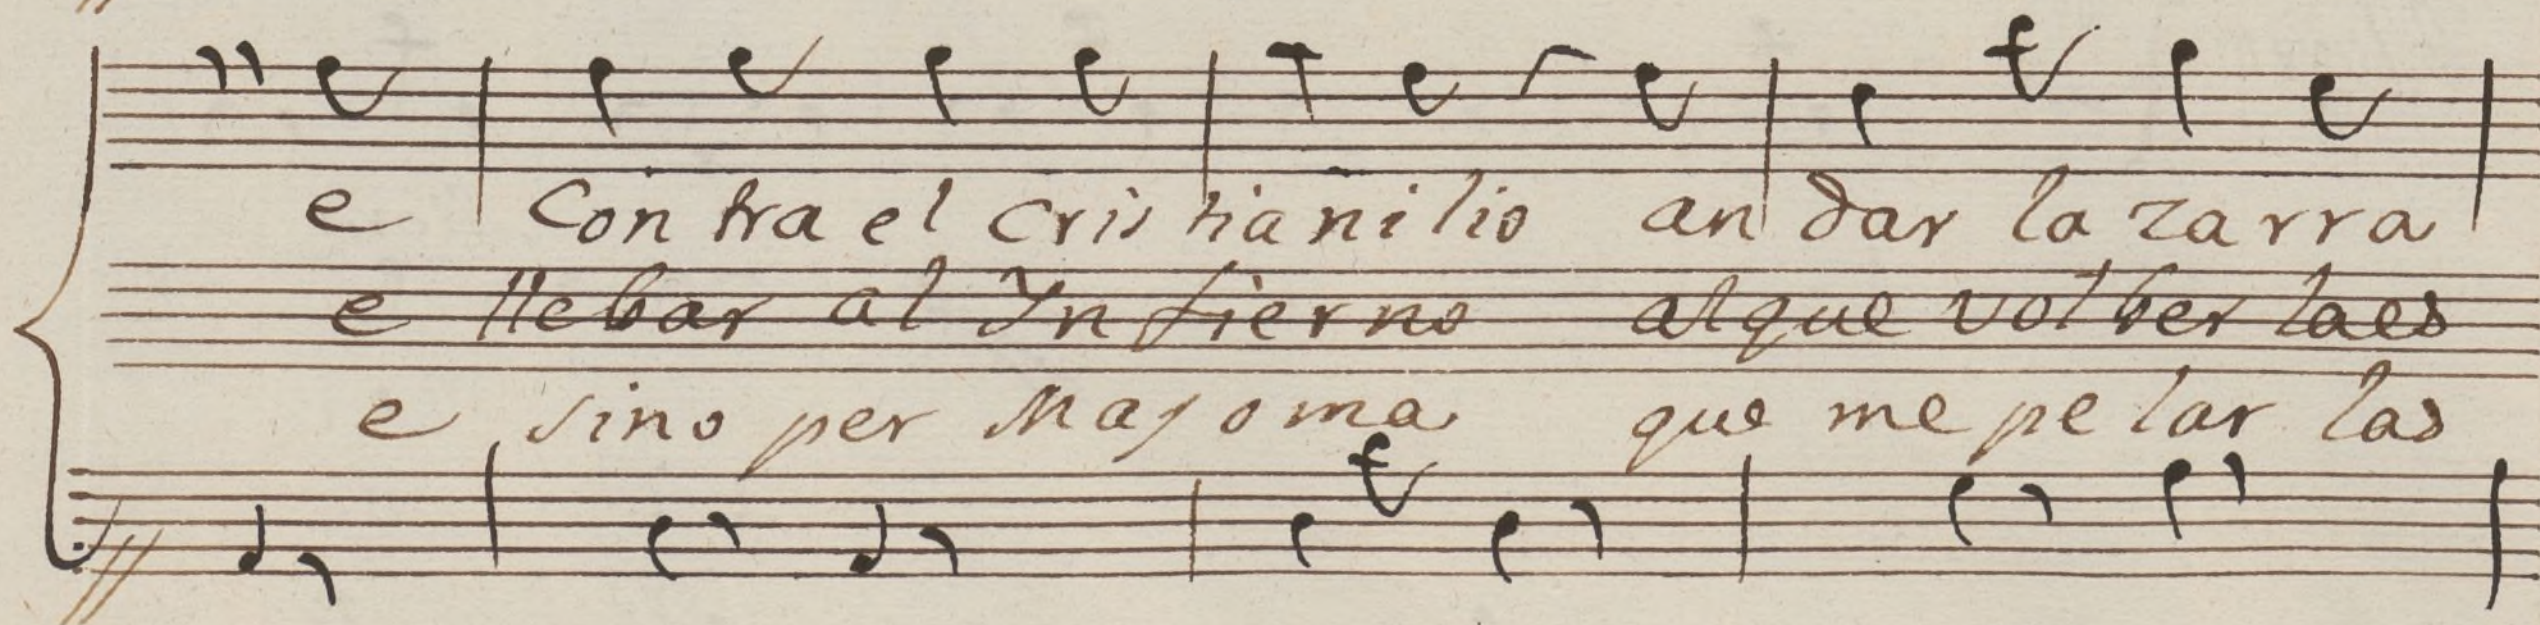 e Con tra el cris tia ni lio an dar la za rra
e llebar al Yn fierno al que vol ber la es
e sino per Mayoma que me pe lar las